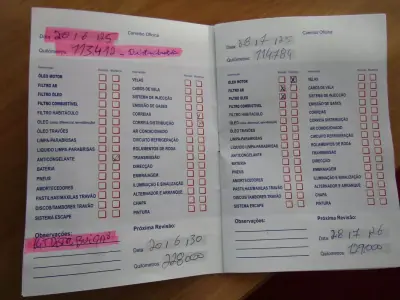 Carimbo Oficina
Data: 20 / 6 / 25
Quilómetros: 113410 - Distribuição
ÓLEO MOTOR
FILTRO AR
FILTRO ÓLEO
FILTRO COMBUSTÍVEL
FILTRO HABITÁCULO
ÓLEO TRAVÕES
LIMPA-PARABRISAS
LÍQUIDO LIMPA-PARABRISAS
ANTICONGELANTE
BATERIA
PNEUS
AMORTECEDORES
PASTILHAS/MAXILAS TRAVÃO
DISCOS/TAMBORES TRAVÃO
SISTEMA ESCAPE
VELAS
CABOS DE VELA
SISTEMA DE INJECÇÃO
EMISSÃO DE GASES
CORREIAS
CORREIA DISTRIBUIÇÃO
AR CONDICIONADO
CIRCUITO REFRIGERAÇÃO
ROLAMENTOS DE RODA
TRANSMISSÃO
DIRECÇÃO
EMBRAIAGEM
ILUMINAÇÃO E SINALIZAÇÃO
ALTERNADOR E ARRANQUE
CHAPA
PINTURA
Observações:
Próxima Revisão:
Data: 20 / 6 / 30
Quilómetros: 228000
Carimbo Oficina
Data: 28 / 7 / 25
Quilómetros: 114784
ÓLEO MOTOR
FILTRO AR
FILTRO ÓLEO
FILTRO COMBUSTÍVEL
FILTRO HABITÁCULO
ÓLEO TRAVÕES
LIMPA-PARABRISAS
LÍQUIDO LIMPA-PARABRISAS
ANTICONGELANTE
BATERIA
PNEUS
AMORTECEDORES
PASTILHAS/MAXILAS TRAVÃO
DISCOS/TAMBORES TRAVÃO
SISTEMA ESCAPE
VELAS
CABOS DE VELA
SISTEMA DE INJECÇÃO
EMISSÃO DE GASES
CORREIAS
CORREIA DISTRIBUIÇÃO
AR CONDICIONADO
CIRCUITO REFRIGERAÇÃO
ROLAMENTOS DE RODA
TRANSMISSÃO
DIRECÇÃO
EMBRAIAGEM
ILUMINAÇÃO E SINALIZAÇÃO
ALTERNADOR E ARRANQUE
CHAPA
PINTURA
Observações:
Próxima Revisão:
Data: 28 / 7 / 26
Quilómetros: